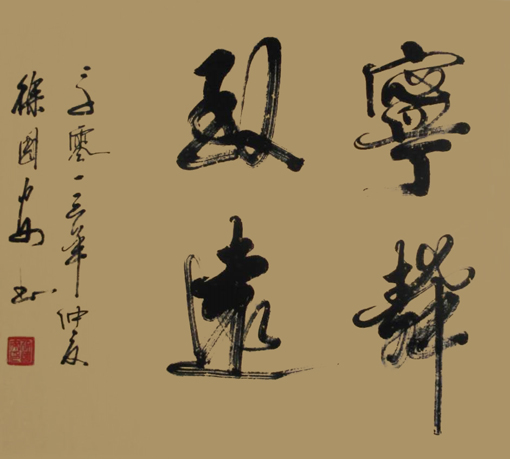 寧靜
致遠
零一三年仲夏
徐國安书